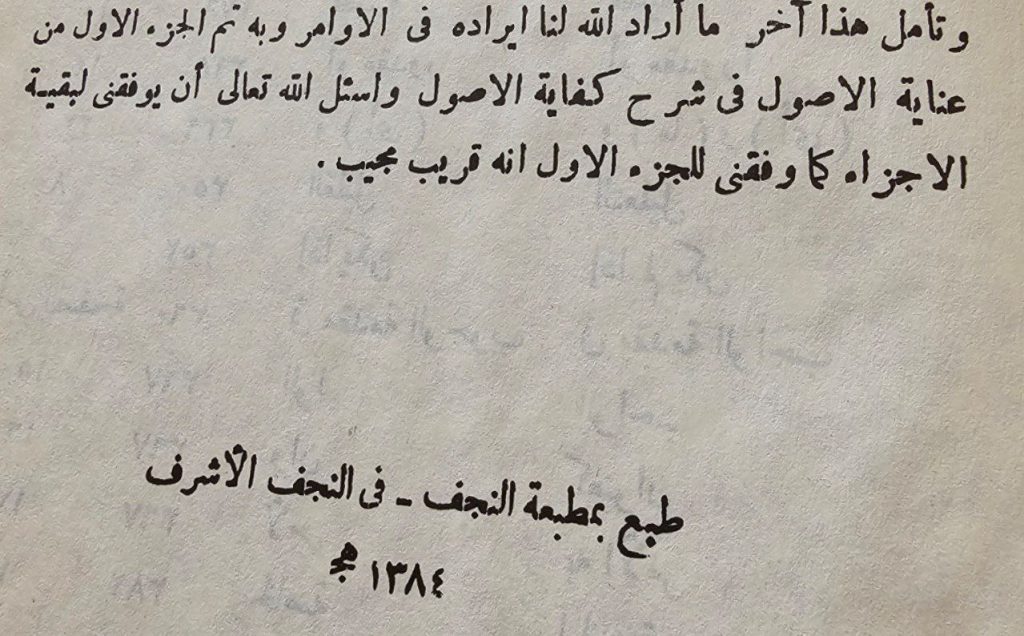 وتأمل هذا آخر ما أراد الله لنا ايراده فى الاوامر وبه تم الجزء الاول من
عناية الاصول فى شرح كفاية الاصول واسئل الله تعالى أن يوفقنى لبقية
الاجزاء كما وفقنى للجزء الاول انه قريب مجيب .
طبع بمطبعة النجف - فى النجف الأشرف
١٣٨٤ هج